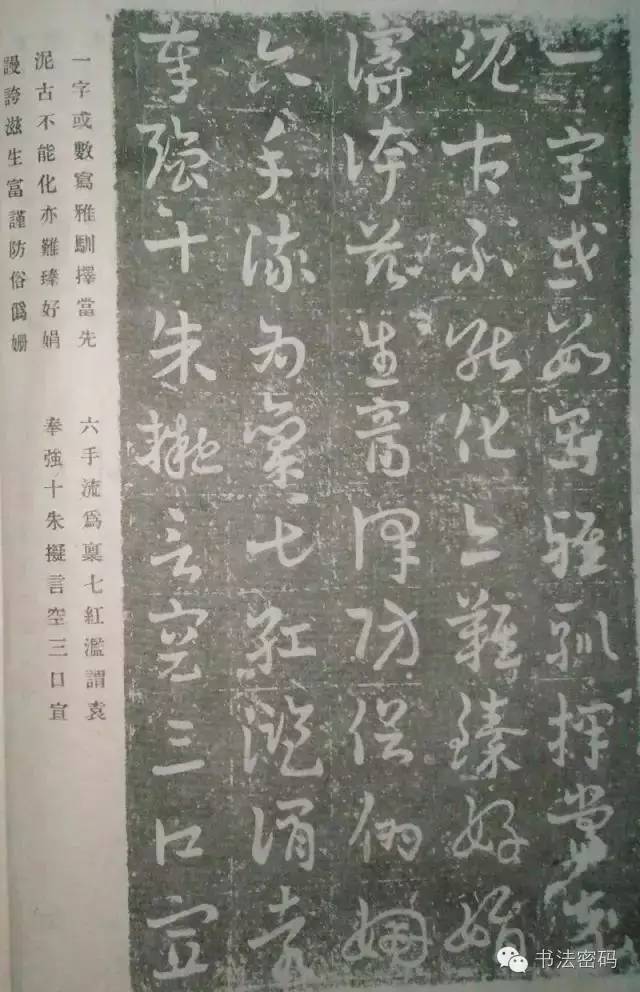 一字或數寫雅馴擇當先
泥古不能化亦難臻好娟
謾誇滋生富謹防俗偽姍
六手流為稟七紅濫謂袁
奉強十朱擬言空三口宣
一字或數寫雅馴擇當先
泥古不能化亦難臻好娟
謾誇滋生富謹防俗僞姍
六手流爲稟七紅濫謂袁
奉強十朱擬言空三口宣
书法密码